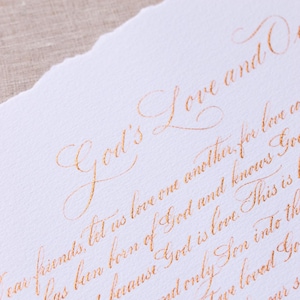 God's Love and O
ear friends, let us love one another, for love co
has been born of God and knows God
because God is love. This is h
and only Son into th
ve loved God
our s